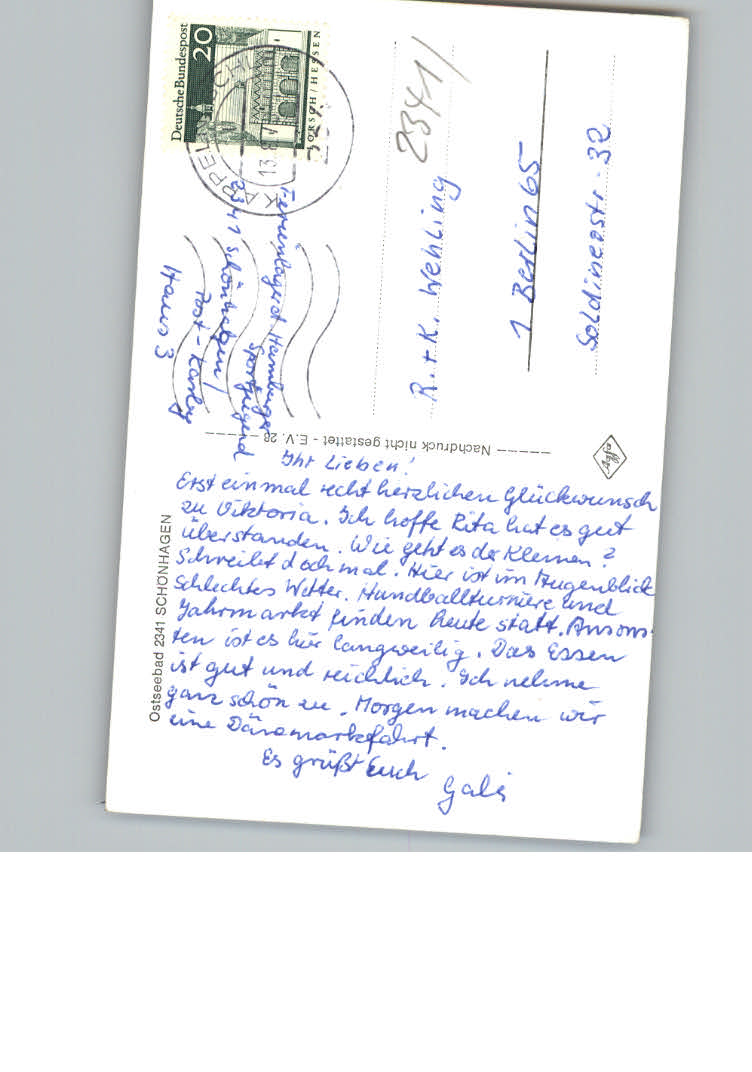 Deutsche Bundespost
20
LORSCH / HESSEN
KAPPELN
13.8.
2341/
Ferienlager d Hamburger
Sportjugend
2341 Schönhagen /
Post - Karlby
Haus 3
R. + K. Wehling
1 Berlin 65
Soldinerstr. 32
Nachdruck nicht gestattet - E.V. 28
Agfa
Ostseebad 2341 SCHÖNHAGEN
Ihr Lieben!
Erst einmal recht herzlichen Glückwunsch
zu Viktoria. Ich hoffe Rita hat es gut
überstanden. Wie geht es der Kleinen?
Schreibt doch mal. Hier ist im Augenblick
schlechtes Wetter. Handballturniere und
Jahrmarkt finden heute statt. Ansons-
ten ist es hier langweilig. Das Essen
ist gut und reichlich. Ich nehme
ganz schön zu. Morgen machen wir
eine Dänemarkfahrt.
Es grüßt Euch
Gabi